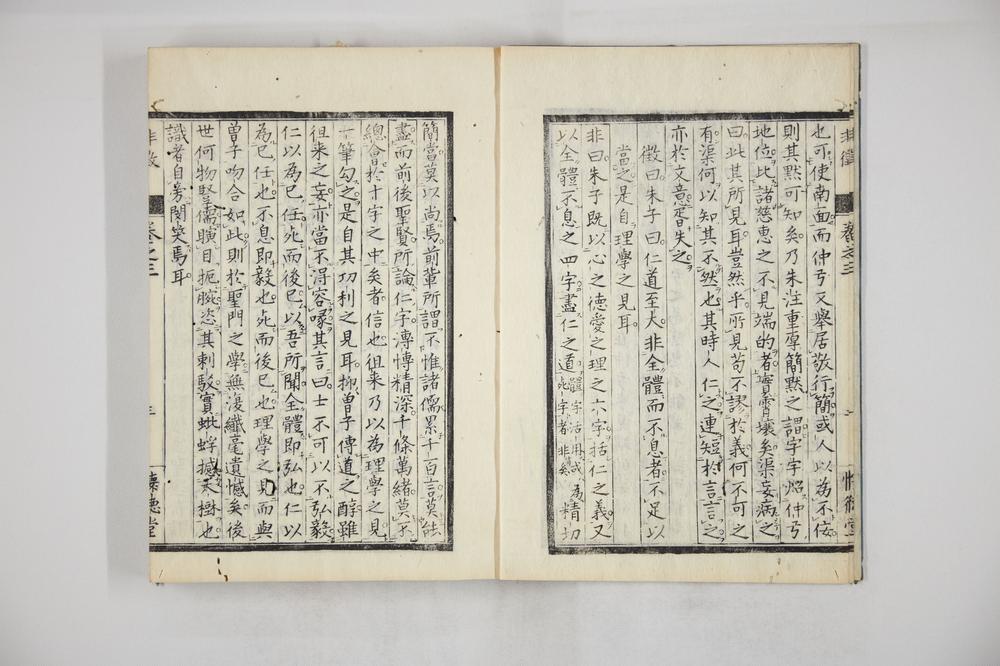 非徵 卷之三
也可使南面而仲弓又舉居敬行簡或人以為不佞
則其默可知矣乃朱注重厚簡默之謂字字炤仲弓
地位比諸慈惠之不見端的者實霄壤矣渠妄病之
曰此其所見耳豈然乎所見苟不謬於義何不可之
有渠何以知其不然也其時人仁之連短於言言之
亦於文意胥失之
徵曰朱子曰仁道至大非全體而不息者不足以
當之是自理學之見耳
非曰朱子既以心之德愛之理之六字括仁之義又
以全體不息之四字盡仁之道體字活用或為此字者非矣精切
簡當莫以尚焉前輩所謂不惟諸儒累千百言莫能
盡而前後聖賢所論仁字溥博精深千條萬緒莫不
總會於十字之中矣者信也徂來乃以為理學之見
一筆勾之是自其功利之見耳抑曾子傳道之醇雖
徂來之妄亦當不得容喙其言曰士不可以不弘毅
仁以為己任死而後已以吾所聞全體即弘也仁以
為己任也不息即毅也死而後已也理學之見而與
曾子吻合如此則於聖門之學無復纖毫遺憾矣後
世何物豎儒瞋目扼腕恣其刺駁實蚍蜉撼大樹也
識者自旁閔笑焉耳
非徵 卷之三 三 懷德堂